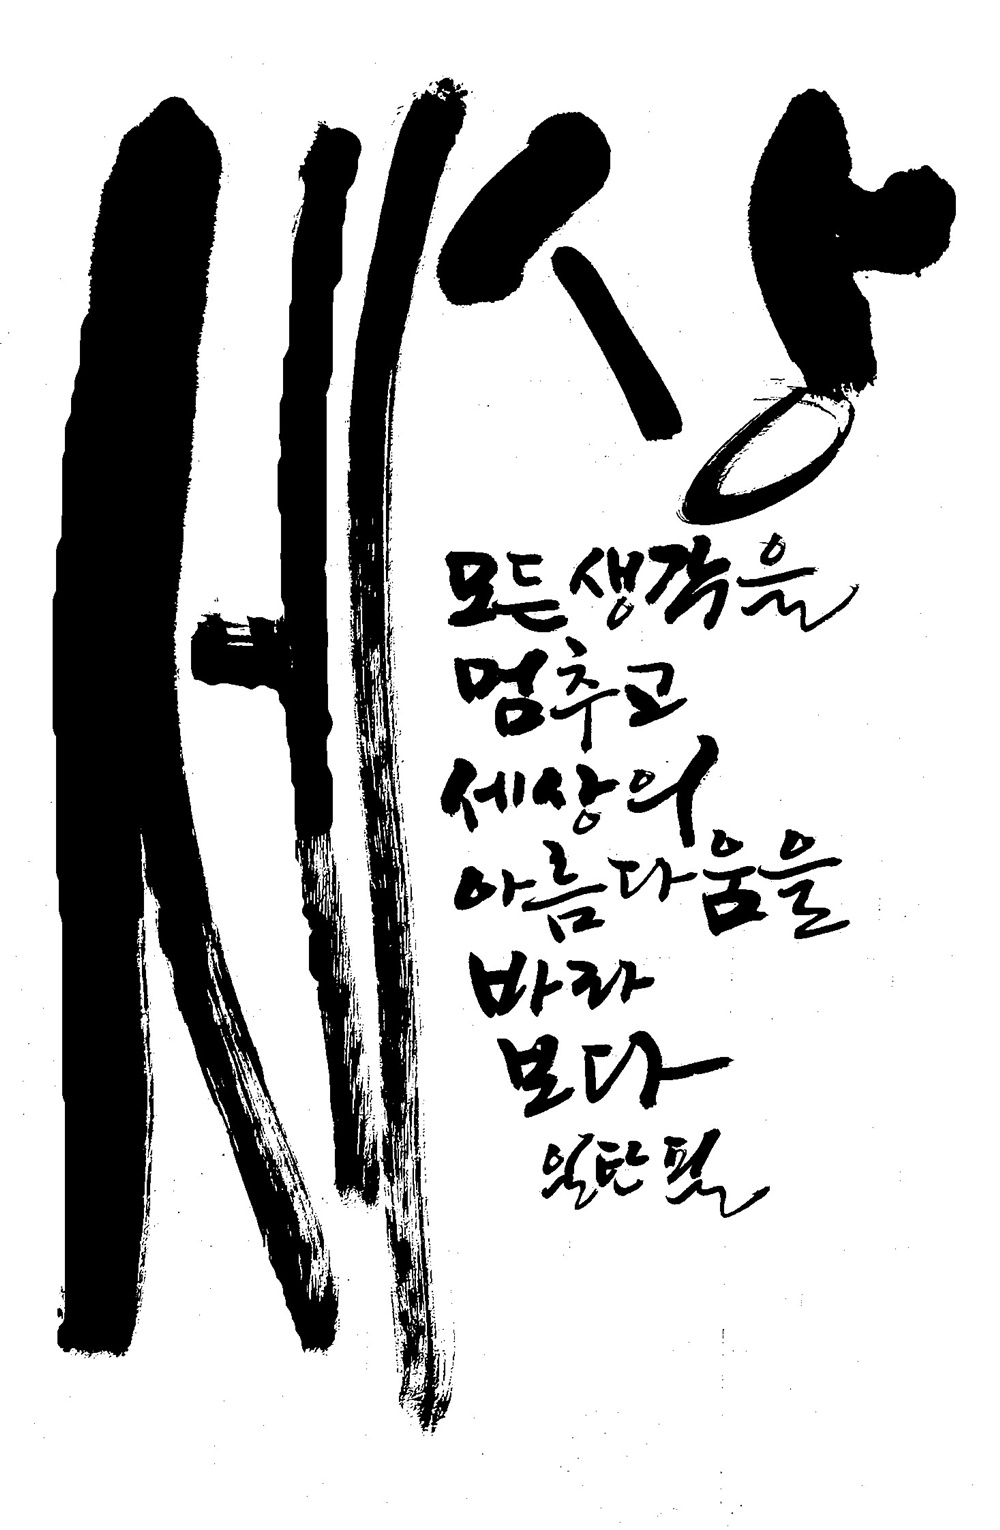 세상
모든 생각을
멈추고
세상의
아름다움을
바라
보다
일탄 필